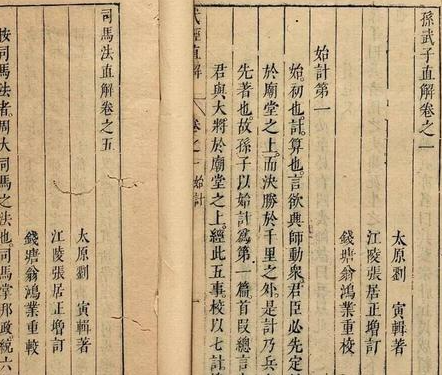 孫武子直解卷之一
太原劉　寅輯著
江陵張居正增訂
錢塘翁鴻業重較
始計第一
始初也計算也言欲興師動衆君臣必先定
於廟堂之上而決勝於千里之外是計乃兵
先著也故孫子以始計爲第一篇首叚總言
君與大將於廟堂之上經此五事校以七計
武經直解　卷之一　始計
司馬法直解卷之五
太原劉　寅輯著
江陵張居正增訂
錢塘翁鴻業重較
按司馬法者周大司馬之法也司馬掌邦政統六